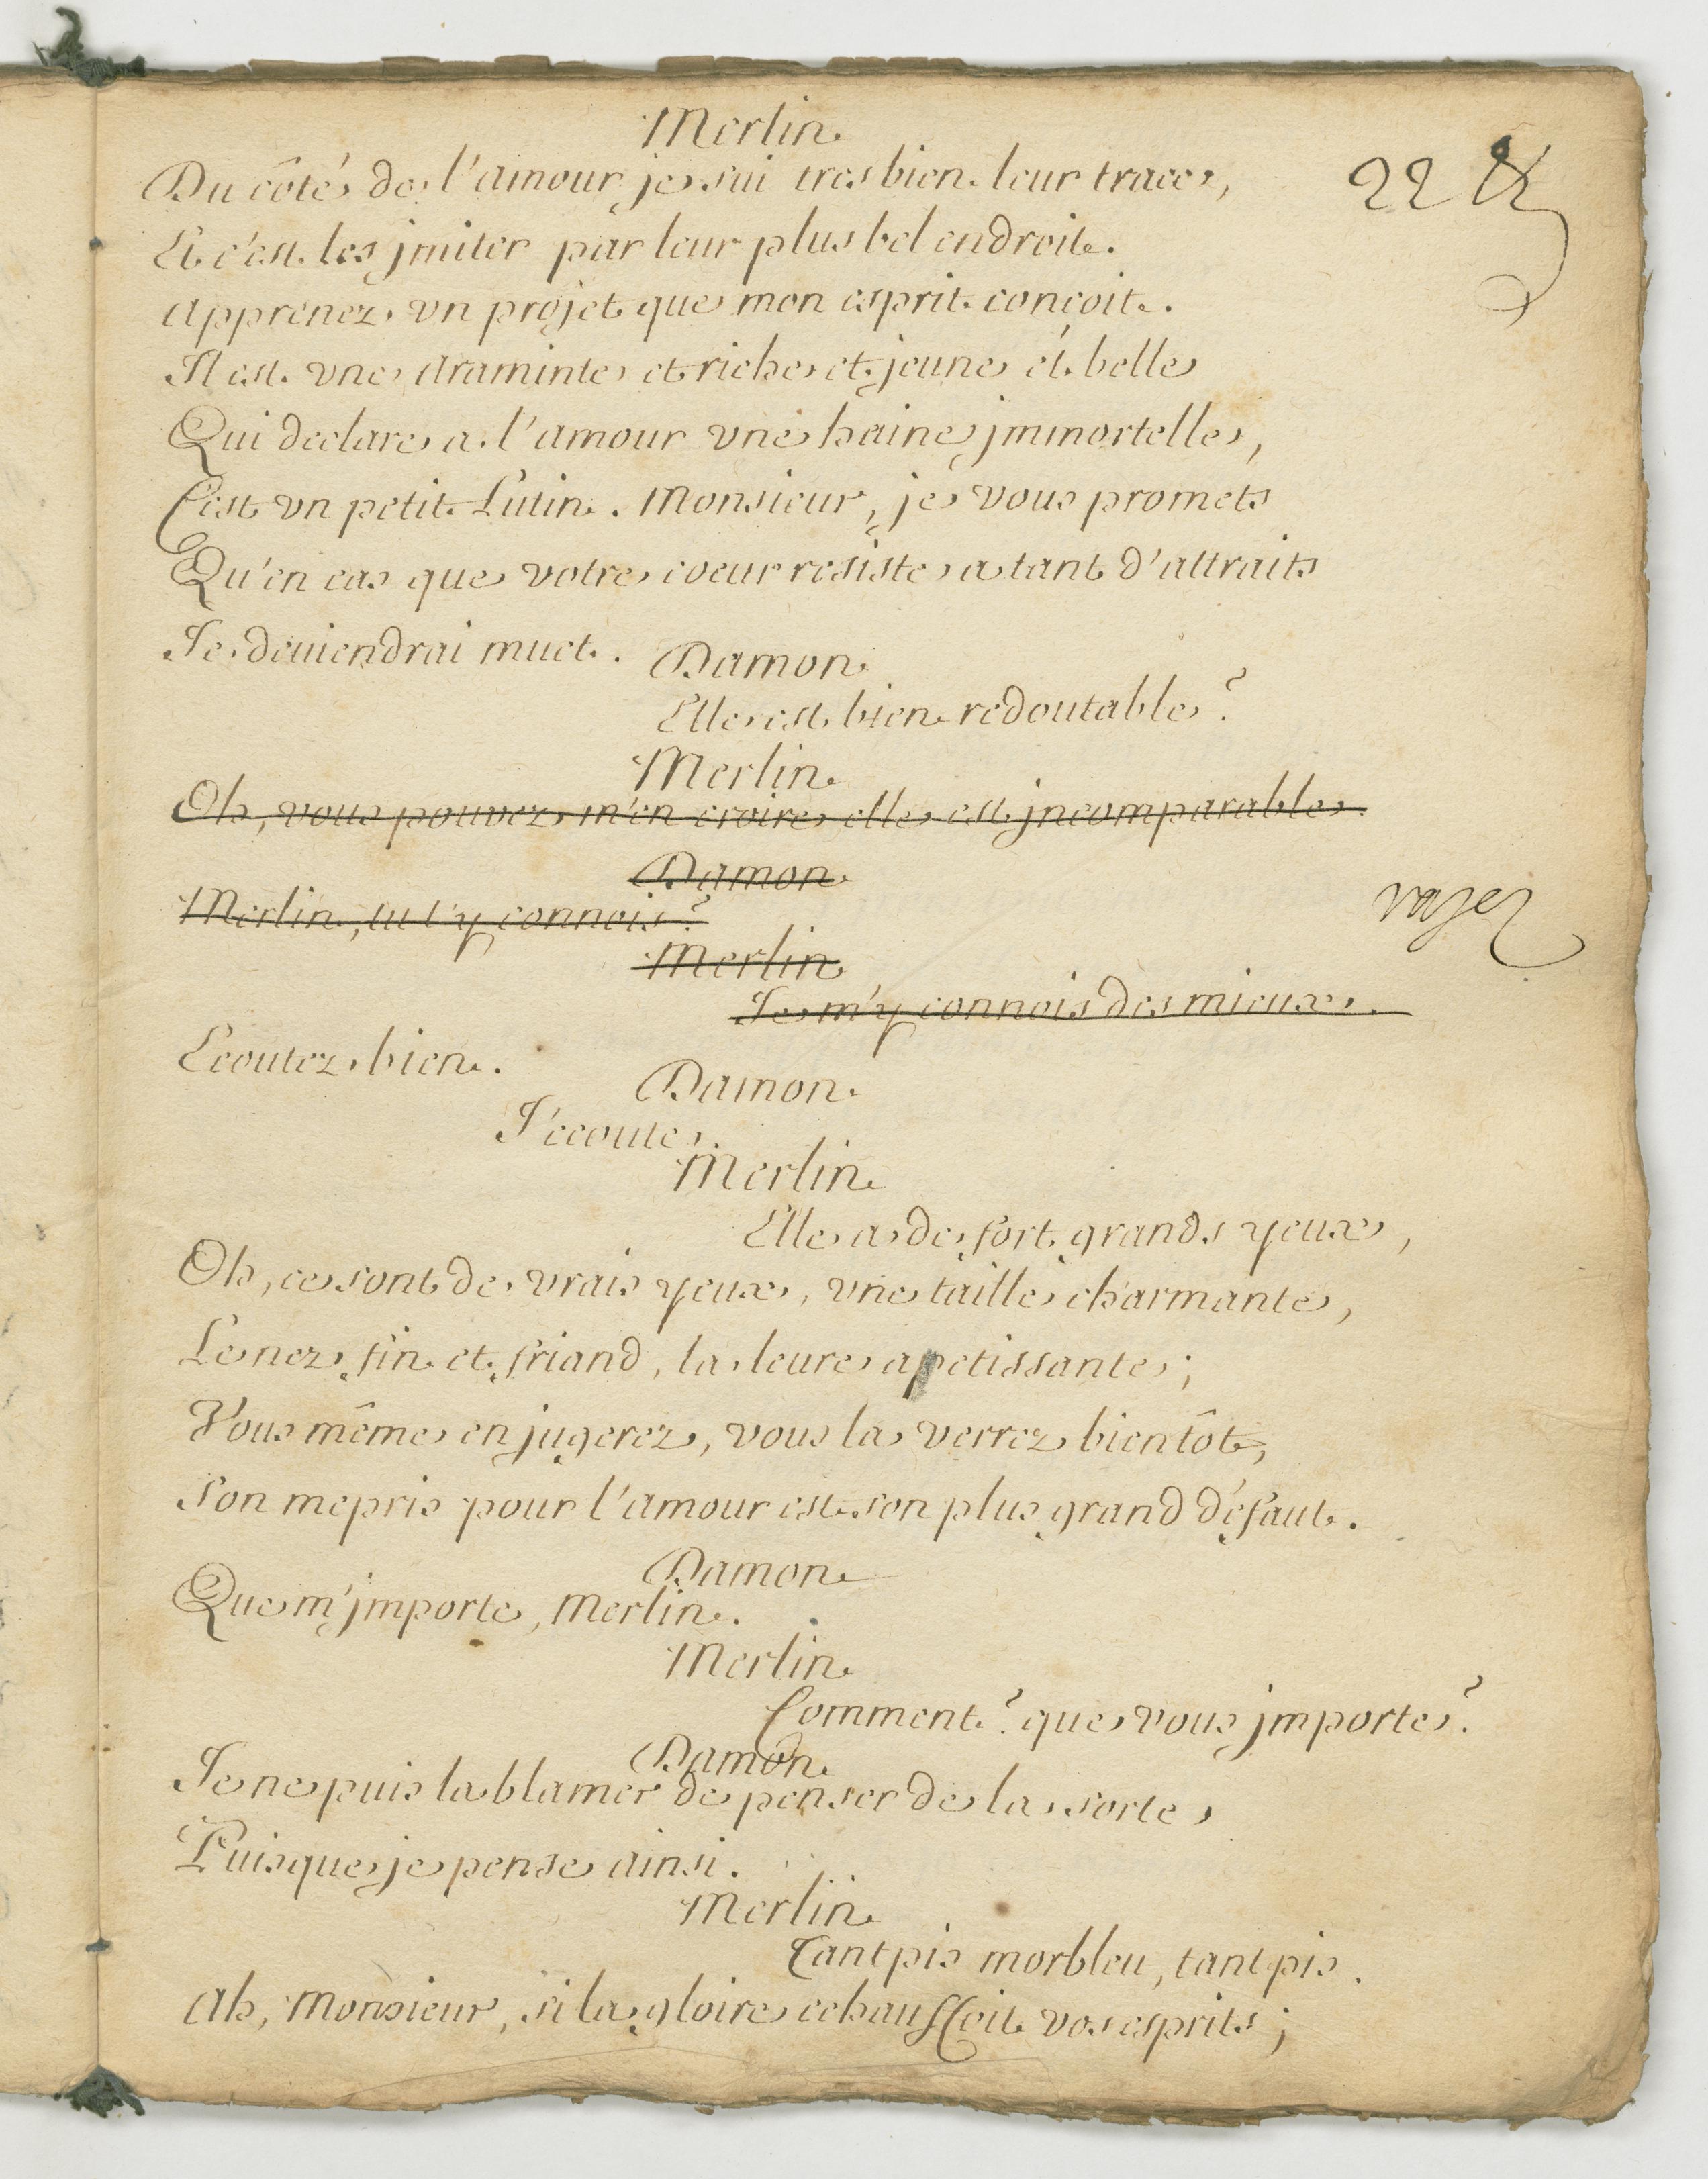 Merlin
22
Du côté de l'amour je sui tres bien leur trace,
Et c'est les jmiter par leur plus bel endroit.
Apprenez vn projet que mon esprit conçoit.
Il est vne Araminte et riche et jeune et belle
Qui declare a l'amour vne haine jmmortelle,
C'est vn petit Lutin. Monsieur, je vous promets
Qu'en cas que votre coeur resiste a tant d'attraits
Je deuiendrai muet.
Damon
Elle est bien redoutable?
Merlin
Oh, vous pouvez m'en croire elle est jncomparable.
Damon
Merlin, tu t'y connois?
rayez
Merlin
Je m'y connois des mieux.
Ecoutez bien.
Damon
J'écoute.
Merlin
Elle a de fort grands yeux,
Oh, ce sont de vrais yeux, vne taille charmante,
Le nez fin et friand, la leure apetissante;
Vous même en jugerez, vous la verrez bientôt,
Son mepris pour l'amour est son plus grand défaut.
Damon
Que m'jmporte, Merlin.
Merlin
Comment? que vous jmporte?
Damon
Je ne puis la blamer de penser de la sorte
Puisque je pense ainsi.
Merlin
Tantpis morbleu, tantpis.
Ah, Monsieur, si la gloire echauffoit vos esprits;